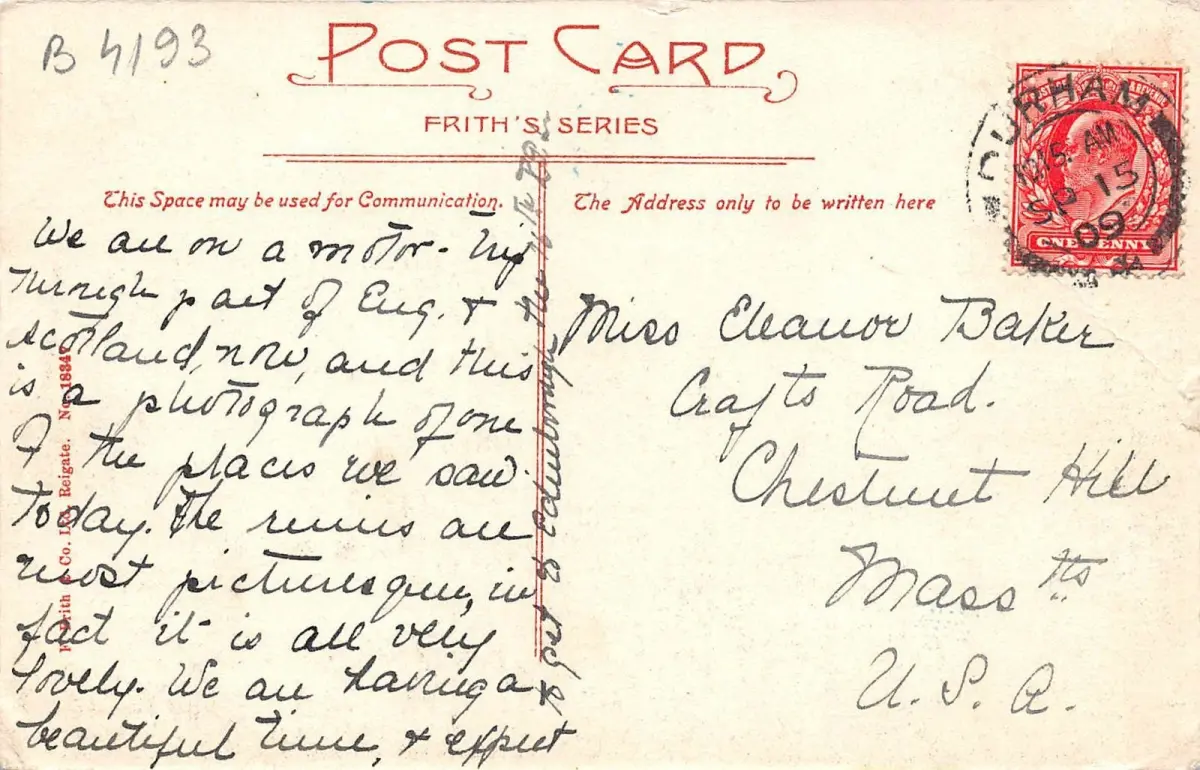 B 4193
POST CARD
FRITH'S SERIES
This Space may be used for Communication.
The Address only to be written here
DURHAM
12.15 AM
SP 15
09
ONE PENNY
We are on a motor-trip
through part of Eng. &
Scotland, now, and this
is a photograph of one
of the places we saw
today. The ruins are
most picturesque, in
fact it is all very
lovely. We are having a
beautiful time, & expect
to get to Edinborough, the
Miss Eleanor Baker
Crafts Road.
Chestnut Hill
Mass tts
U.S.A.
F. Frith & Co. Ltd. Reigate. No. 18347